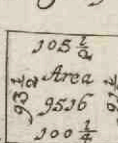 105 1/2
93 1/2
Area
9516
91 1/2
100 1/4